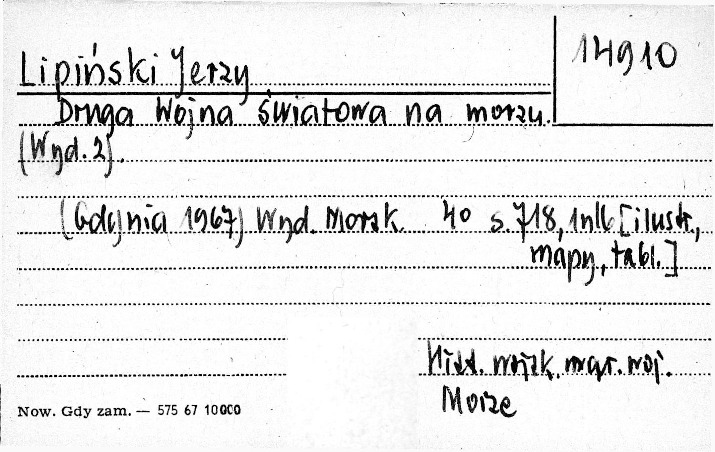 14910
Lipiński Jerzy
Druga Wojna światowa na morzu.
(Wyd. 2).
(Gdynia 1967) Wyd. Morsk. 4o s. 718, 1nlb [ilustr.,
mapy, tabl.]
Hist. wojsk. mar. woj.
Morze
Now. Gdy zam. — 575 67 10000